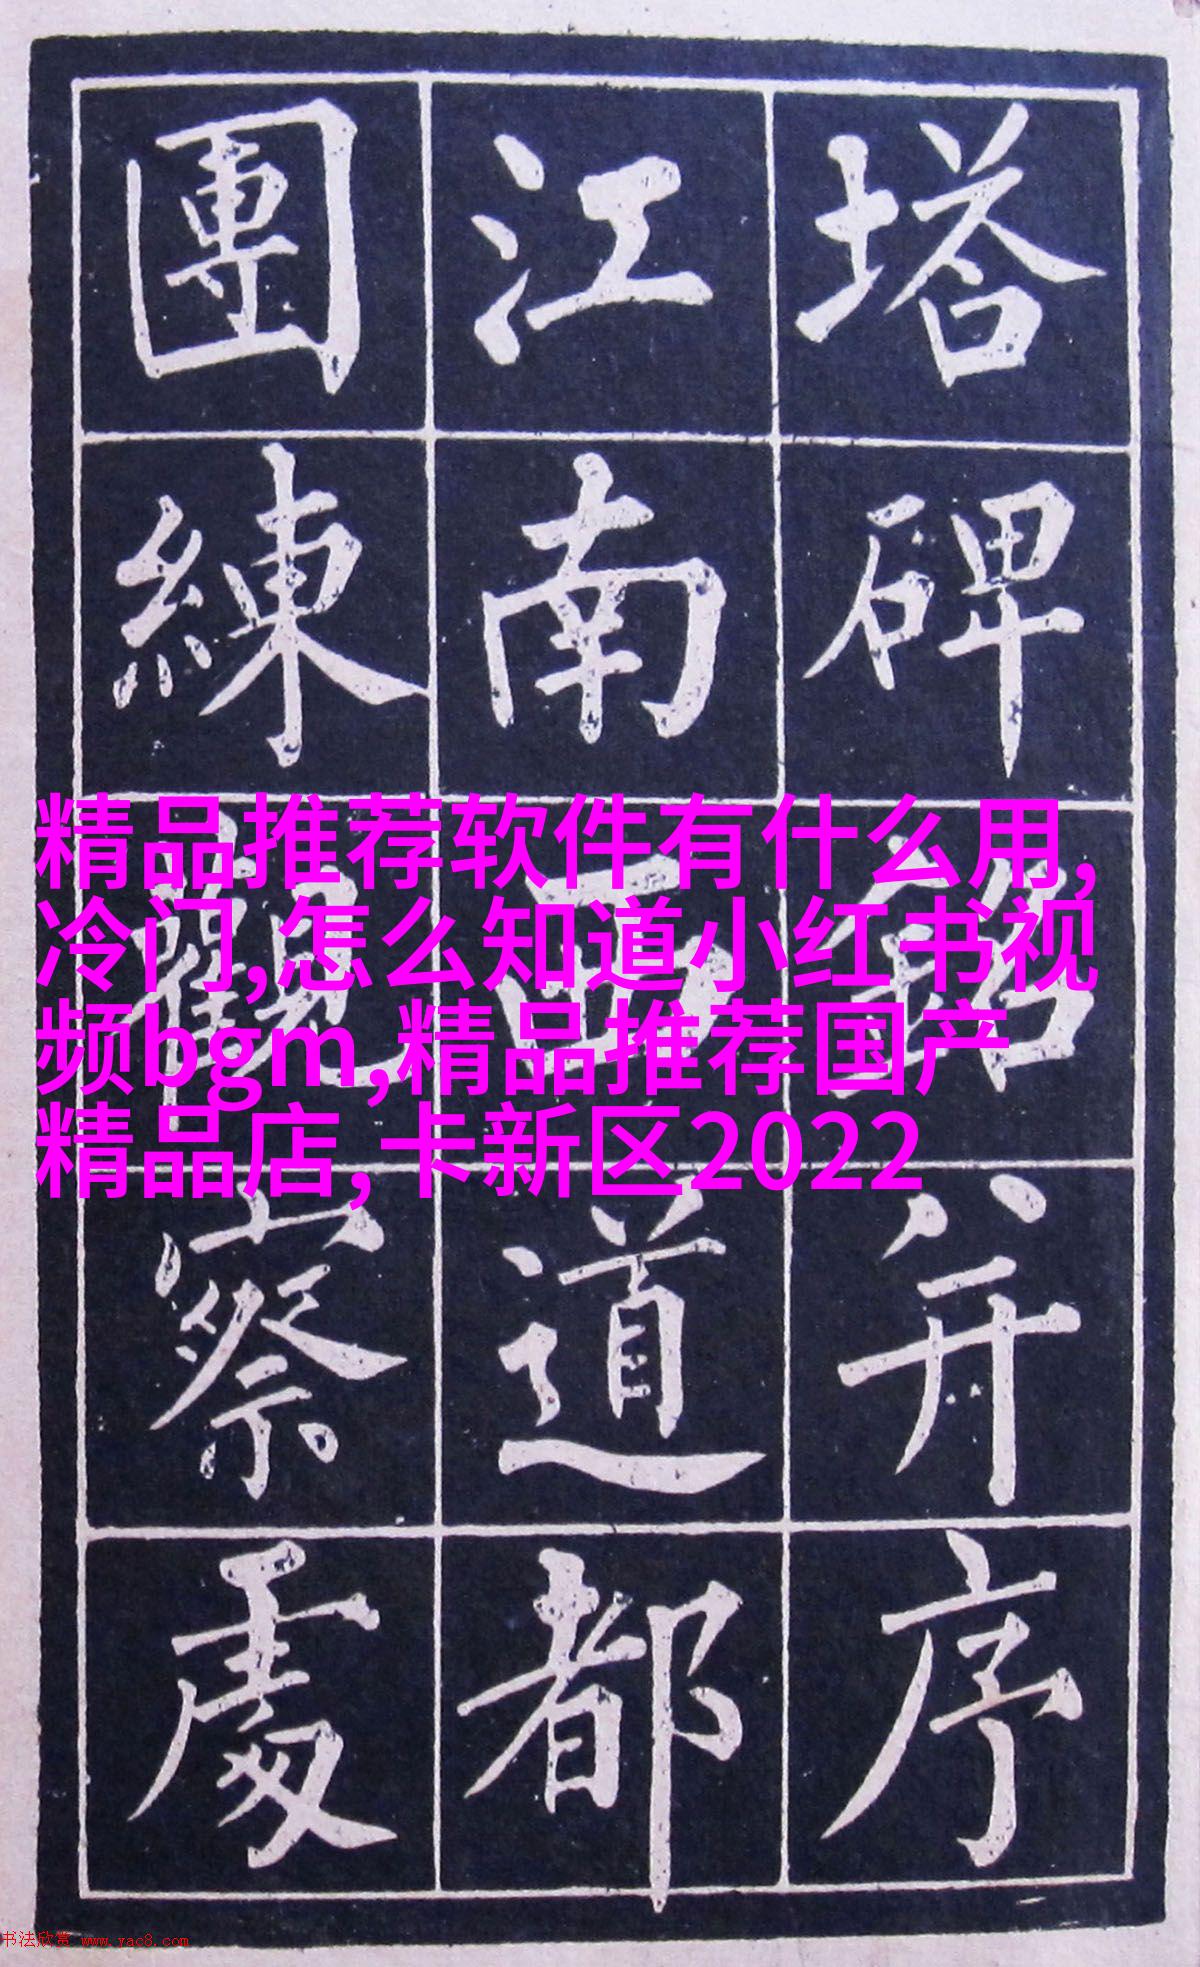 塔碑銘并序
江南西道都
團練觀察處
精品推荐软件有什么用,
冷门,怎么知道小红书视
频bgm,精品推荐国产
精品店,卡新区2022
书法欣赏 www.yac8.com